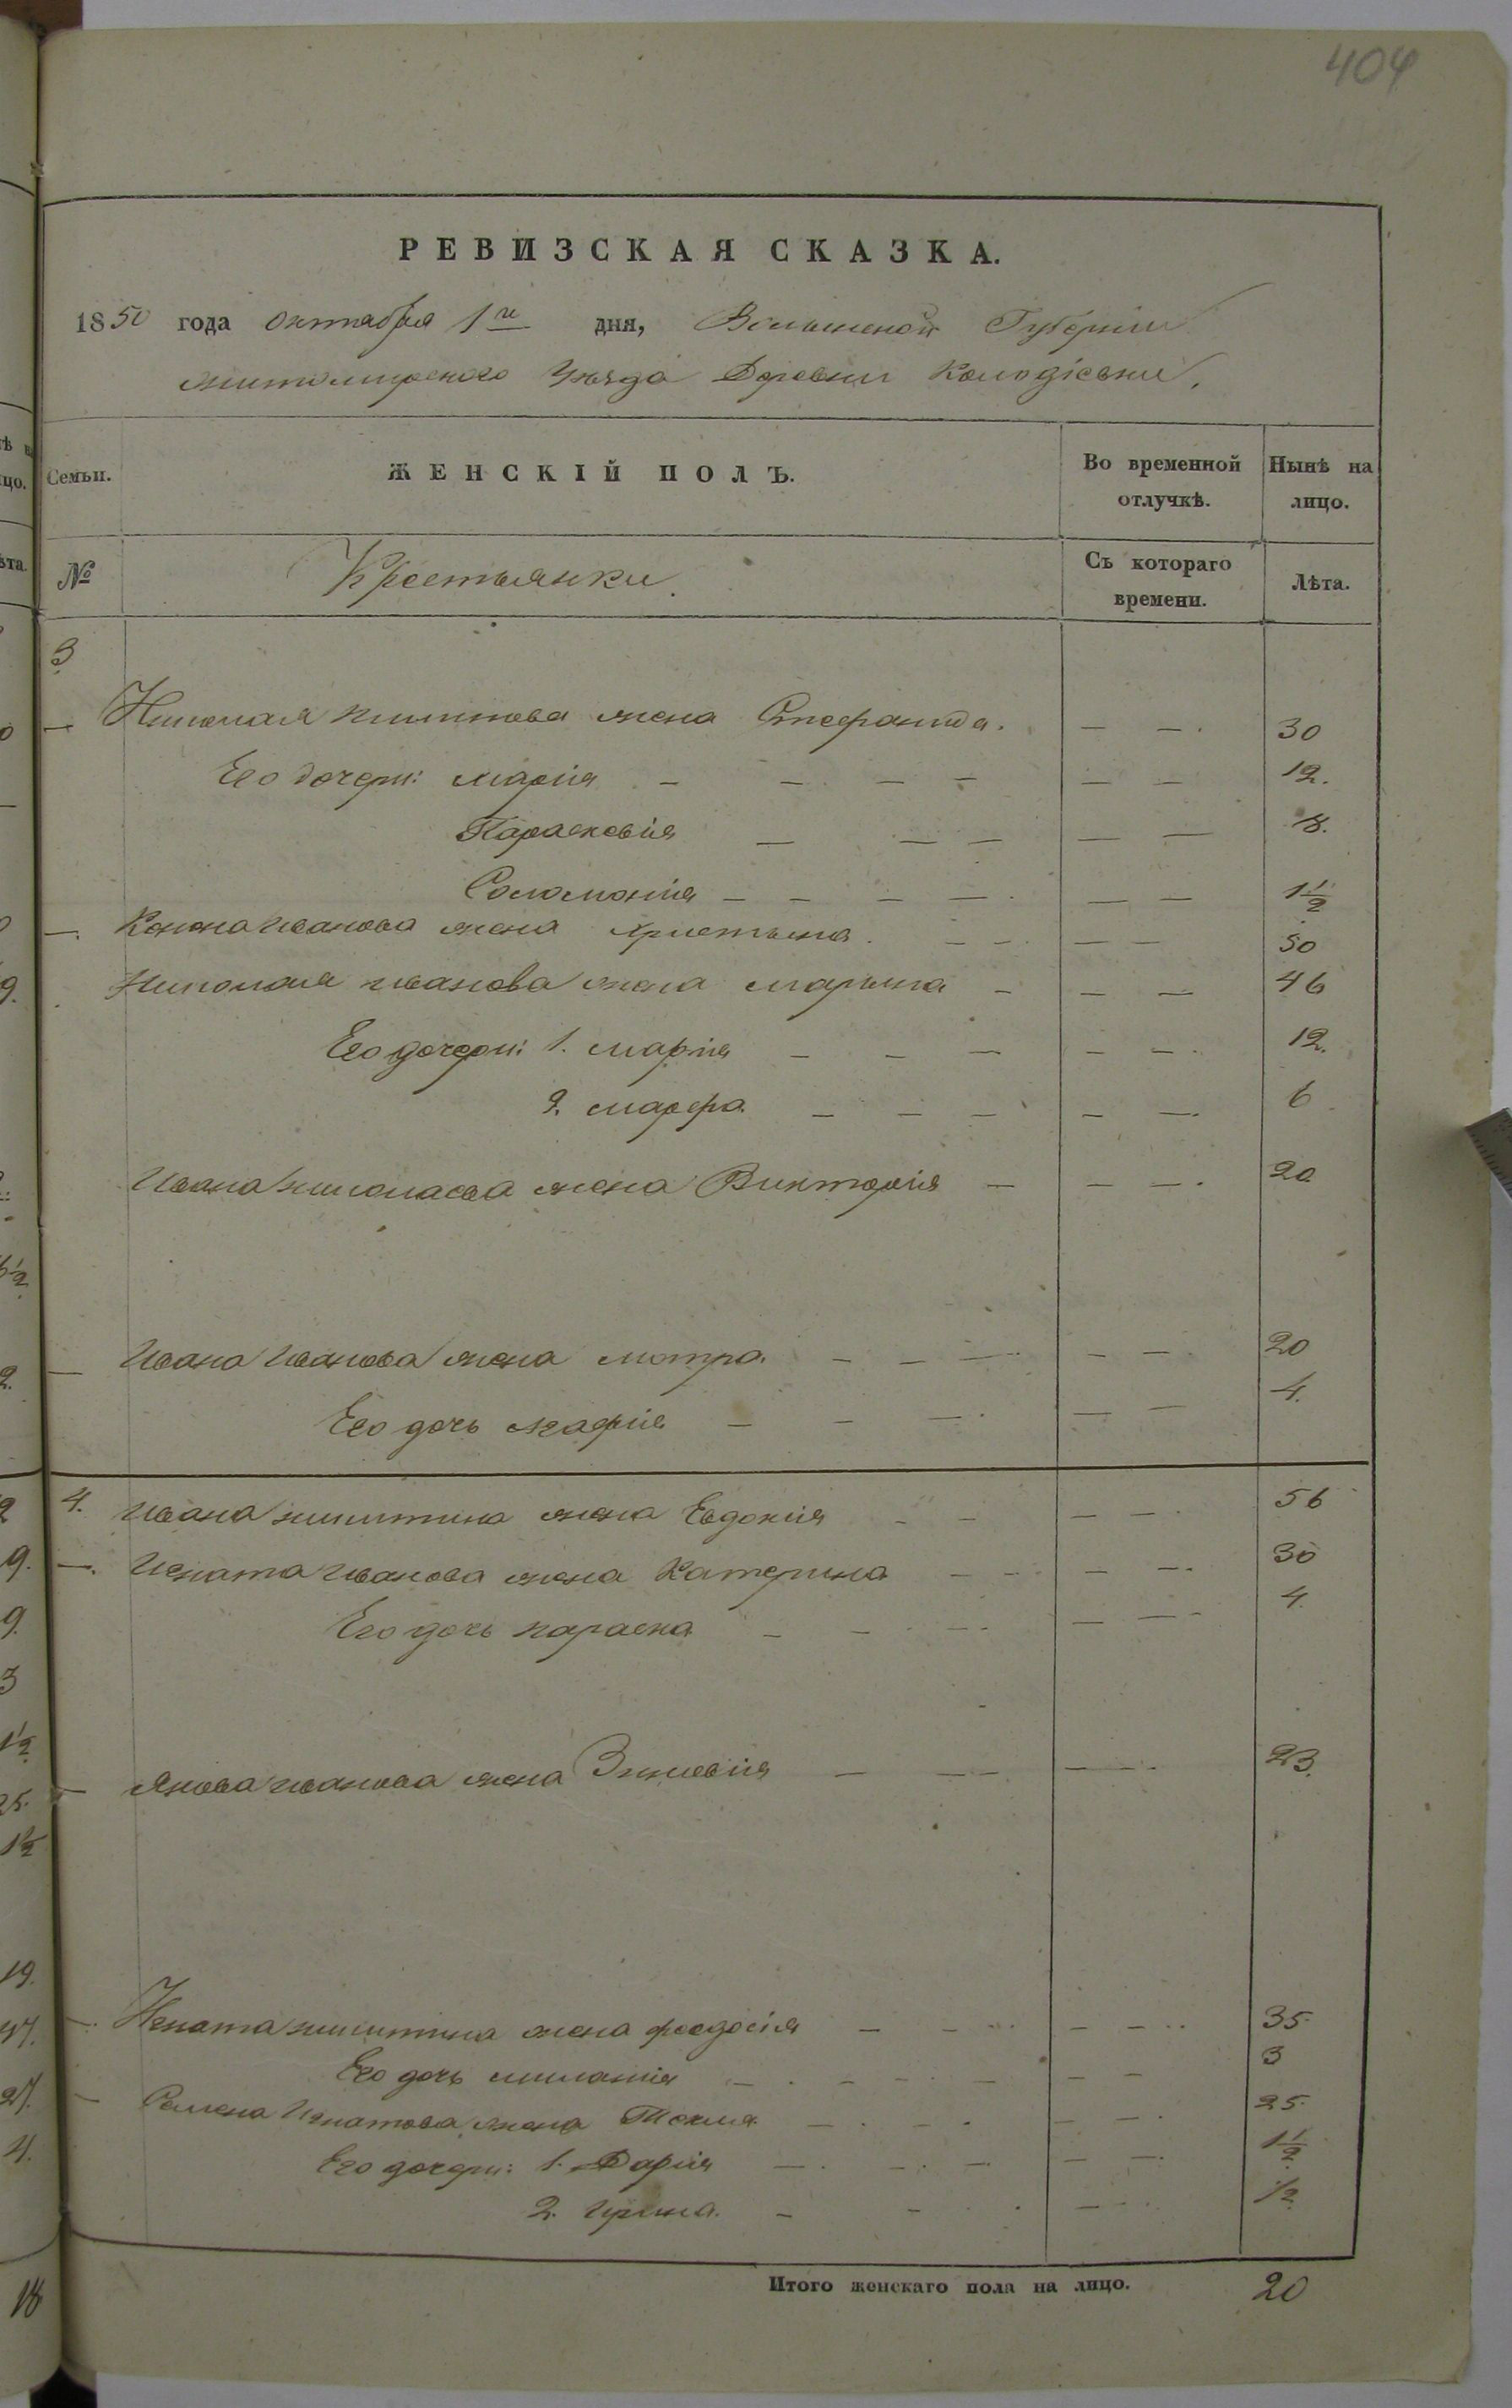 404
РЕВИЗСКАЯ СКАЗКА.
1850 года октября 1го дня, Волынской Губерніи
Житомирского Уезда Деревни Колодіевки.
Семьи. ЖЕНСКІЙ ПОЛЪ. Во временной отлучкѣ. Нынѣ на лицо.
№ Крестьянки. Съ котораго времени. Лѣта.
3
— Николая Климова жена Стефанида. — —. 30
Его дочери: Марія — — — — — — 12.
Парасковія — — — — — 8.
Соломонія — — — —. — — 1 1/2
—. Конона Иванова жена Христына. — —. — — 50
Николая Иванова жена Марына — — — 46
Его дочери: 1. Марія — — — — —. 12.
2. Марфа. — — — — —. 6
Ивана Николаева жена Викторія — — —. 20
— Ивана Иванова жена Мотра. — — —. — — 20
Его дочь Марія — — —. — — 4.
4. Ивана Никитина жена Евдокія — — — —. 56
—. Игната Иванова жена Катерина — — — —. 30
Его дочь Параска — — — — — — 4.
— Якова Иванова жена Зиновія — — — — — 23.
—. Игната Никитина жена Феодосія — — — — 35.
Его дочь Миланія — — — — — 3
— Семена Игнатова жена Текля — — — — —. 25.
Его дочери: 1. Дарія —. —. —. — —. 1 1/2
2. Ирина. — — — — 1/2
Итого женскаго пола на лицо. 20